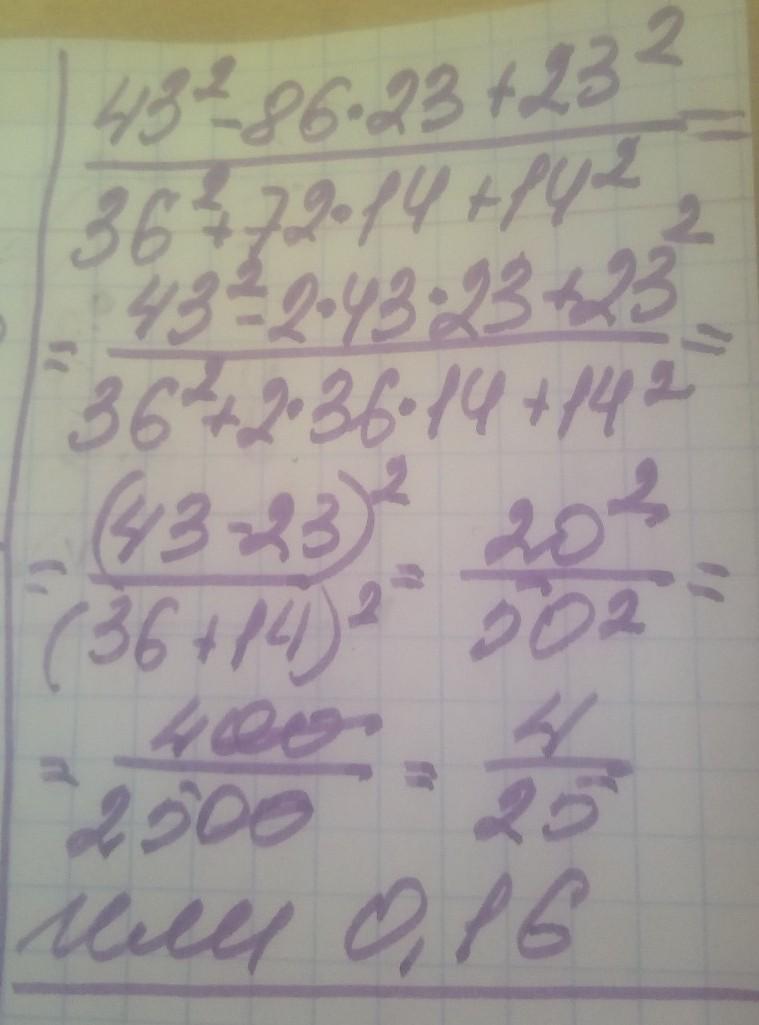 43² - 86·23 + 23² =
36² + 72·14 + 14²
= 43² - 2·43·23 + 23² =
36² + 2·36·14 + 14²
= (43 - 23)² = 20² =
(36 + 14)² 50²
= 400 = 4
2500 25
или 0,16